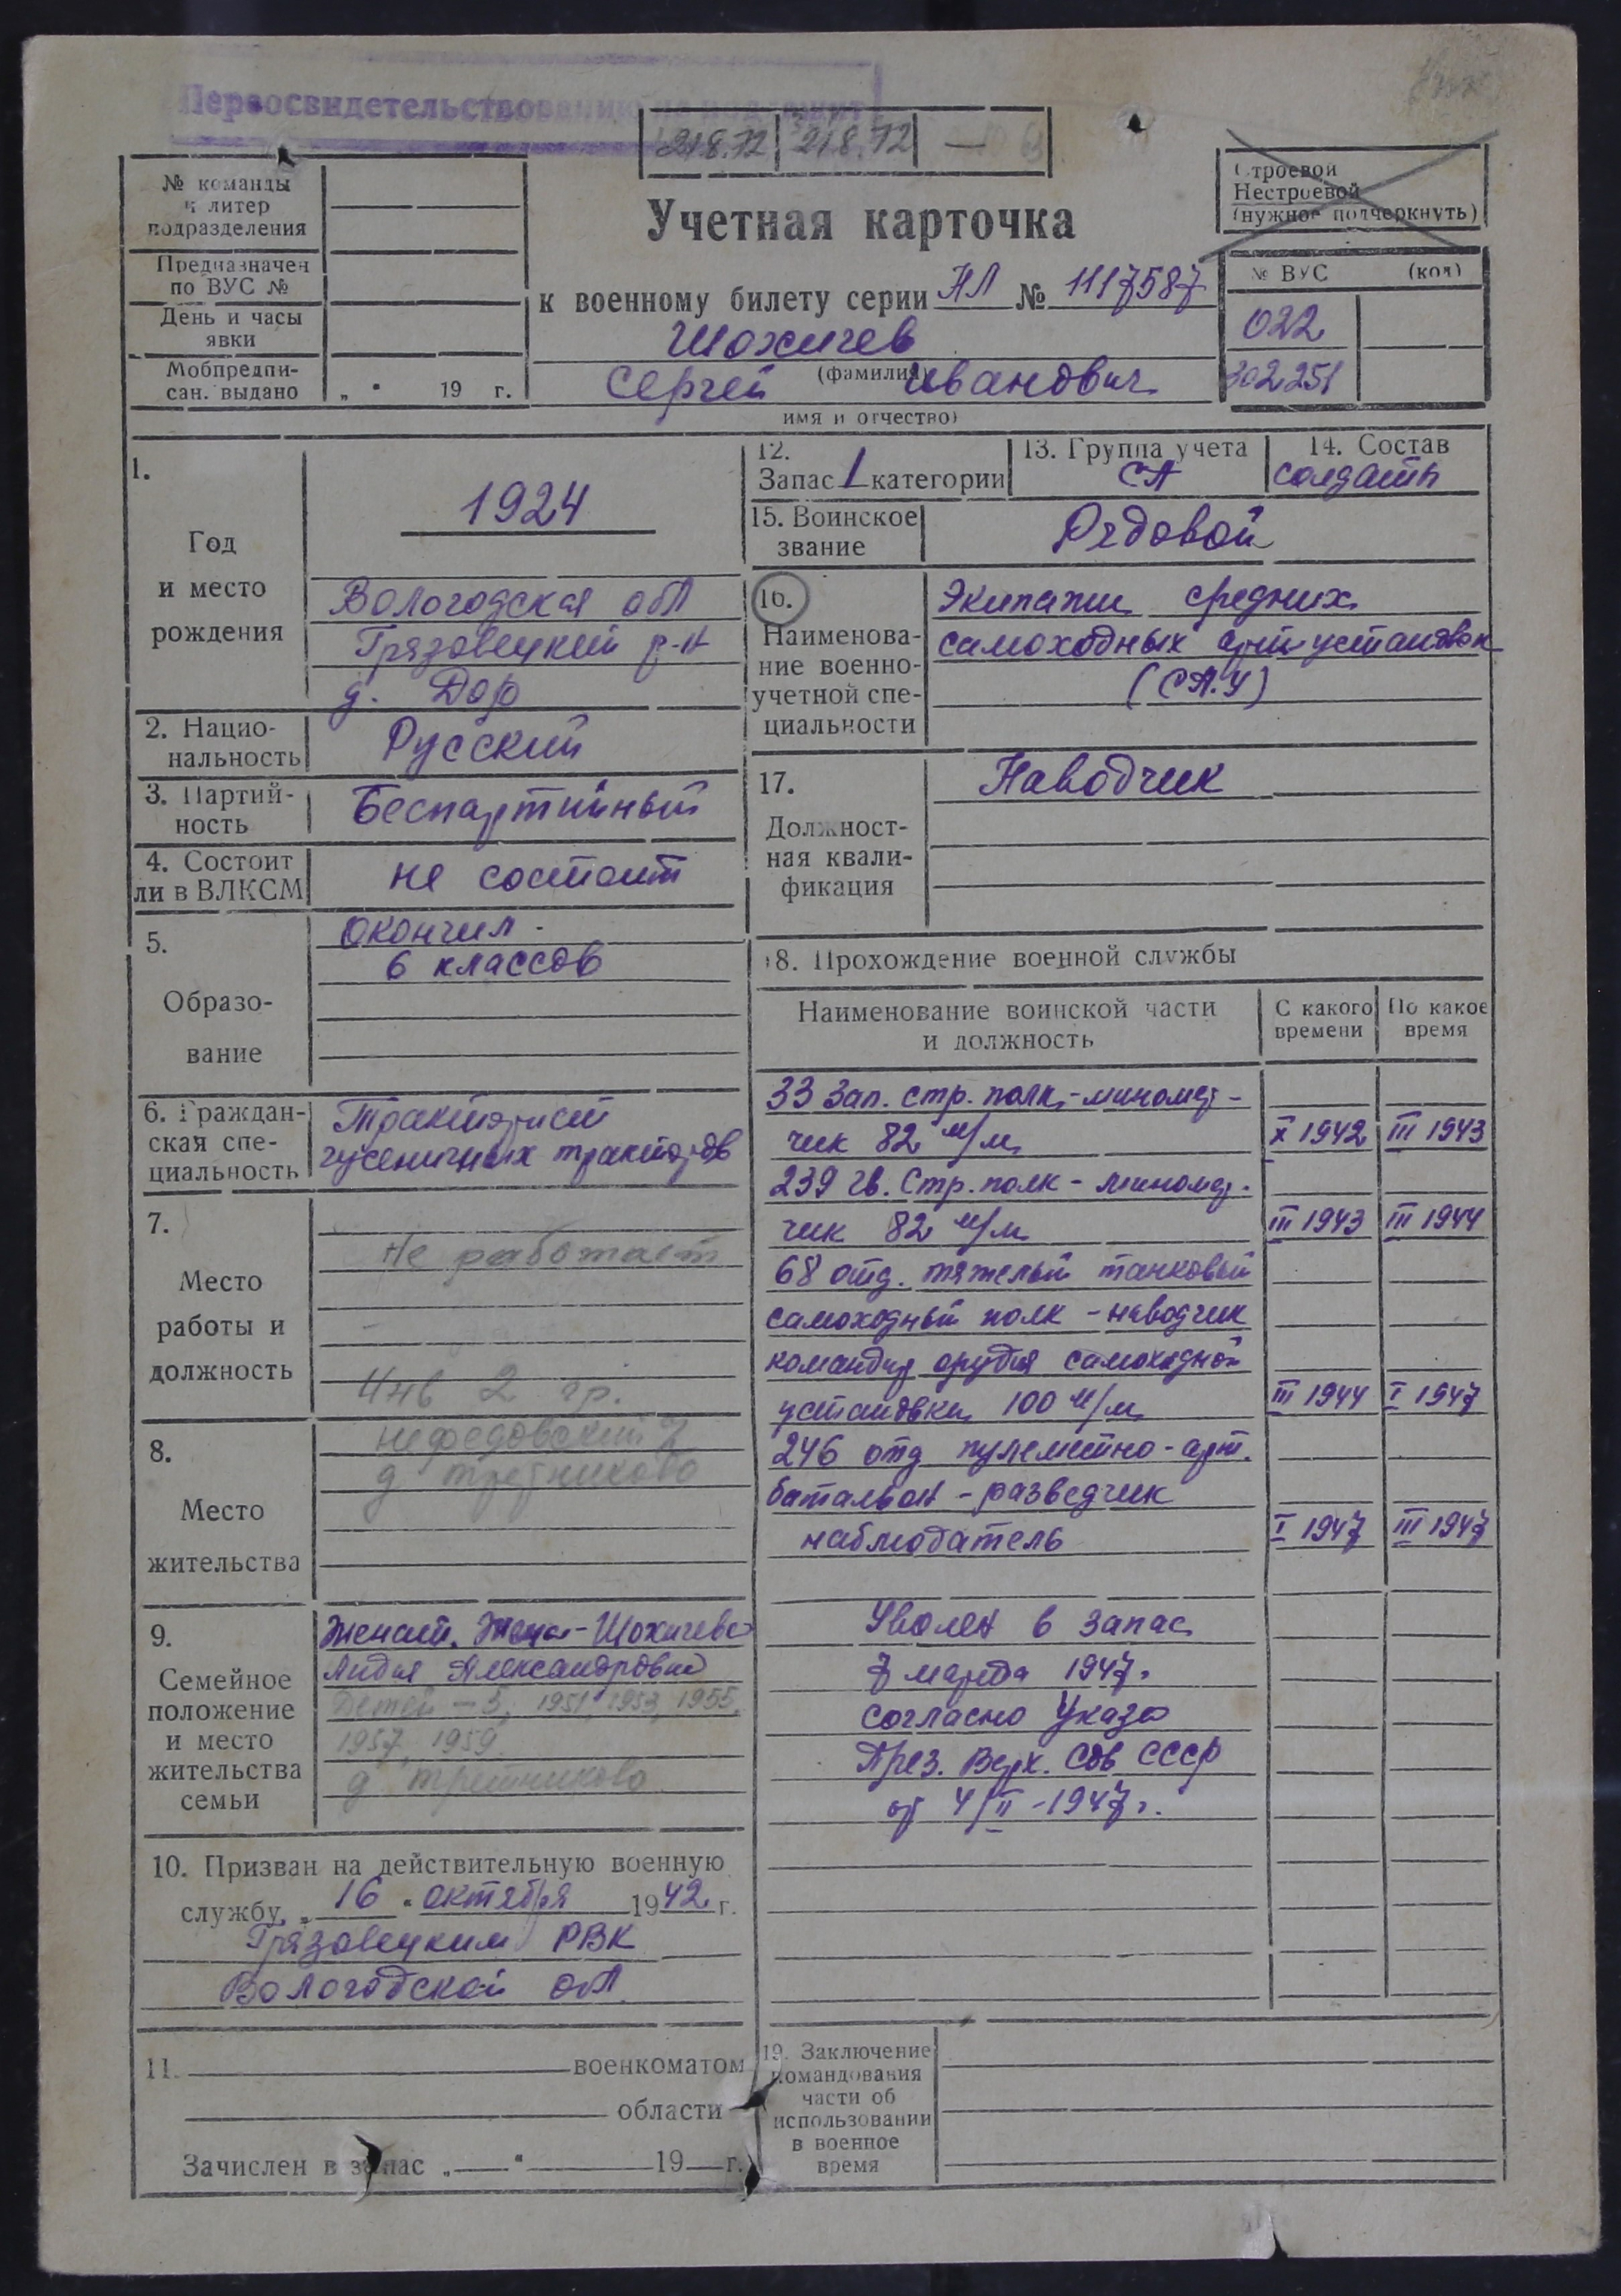 Переосвидетельствованию не подлежит
218.72 218.72 —
№ команды
и литер
подразделения
Предназначен
по ВУС №
День и часы
явки
Мобпредпи-
сан. выдано „ " 19 г.
Учетная карточка
к военному билету серии НЛ № 1117587
Шохичев
(фамилия)
Сергей Иванович
имя и отчество)
Строевой
Нестроевой
(нужное подчеркнуть)
№ ВУС (код)
022
302251
1.
Год
и место
рождения
1924
Вологодская обл
Грязовецкий р-н
д. Дор
2. Нацио-
нальность
Русский
3. Партий-
ность
Беспартийный
4. Состоит
ли в ВЛКСМ
не состоит
5.
Образо-
вание
Окончил
6 классов
6. Граждан-
ская спе-
циальность
Тракторист
гусеничных тракторов
7.
Место
работы и
должность
Не работает
Инв 2 гр.
8.
Место
жительства
Нефедовский
д
9.
Семейное
положение
и место
жительства
семьи
Женат. Жена - Шохичева
Лидия Александровна
Детей - 5, 1951, 1953, 1955,
1957, 1959
д
10. Призван на действительную военную
службу „ 16 " октября 1942 г.
Грязовецким РВК
Вологодской обл.
11. военкоматом
области
Зачислен в запас „ — " 19 — г.
12.
Запас 1 категории
13. Группа учета
СА
14. Состав
солдаты
15. Воинское
звание
Рядовой
16.
Наименова-
ние военно-
учетной спе-
циальности
Экипажи средних
самоходных артустановок
(САУ)
17.
Должност-
ная квали-
фикация
Наводчик
18. Прохождение военной службы
Наименование воинской части
и должность
С какого
времени
По какое
время
33 Зап. стр. полк - миномет-
чик 82 м/м X 1942 III 1943
239 гв. Стр. полк - миномет-
чик 82 м/м III 1943 III 1944
68 отд. тяжелый танковый
самоходный полк - наводчик
командир орудия самоходной
установки 100 м/м III 1944 I 1947
246 отд пулеметно-арт.
батальон - разведчик
наблюдатель I 1947 III 1947
Уволен в запас
7 марта 1947г.
согласно Указа
През. Верх. Сов СССР
от 4/II-1947г.
19. Заключение
командования
части об
использовании
в военное
время